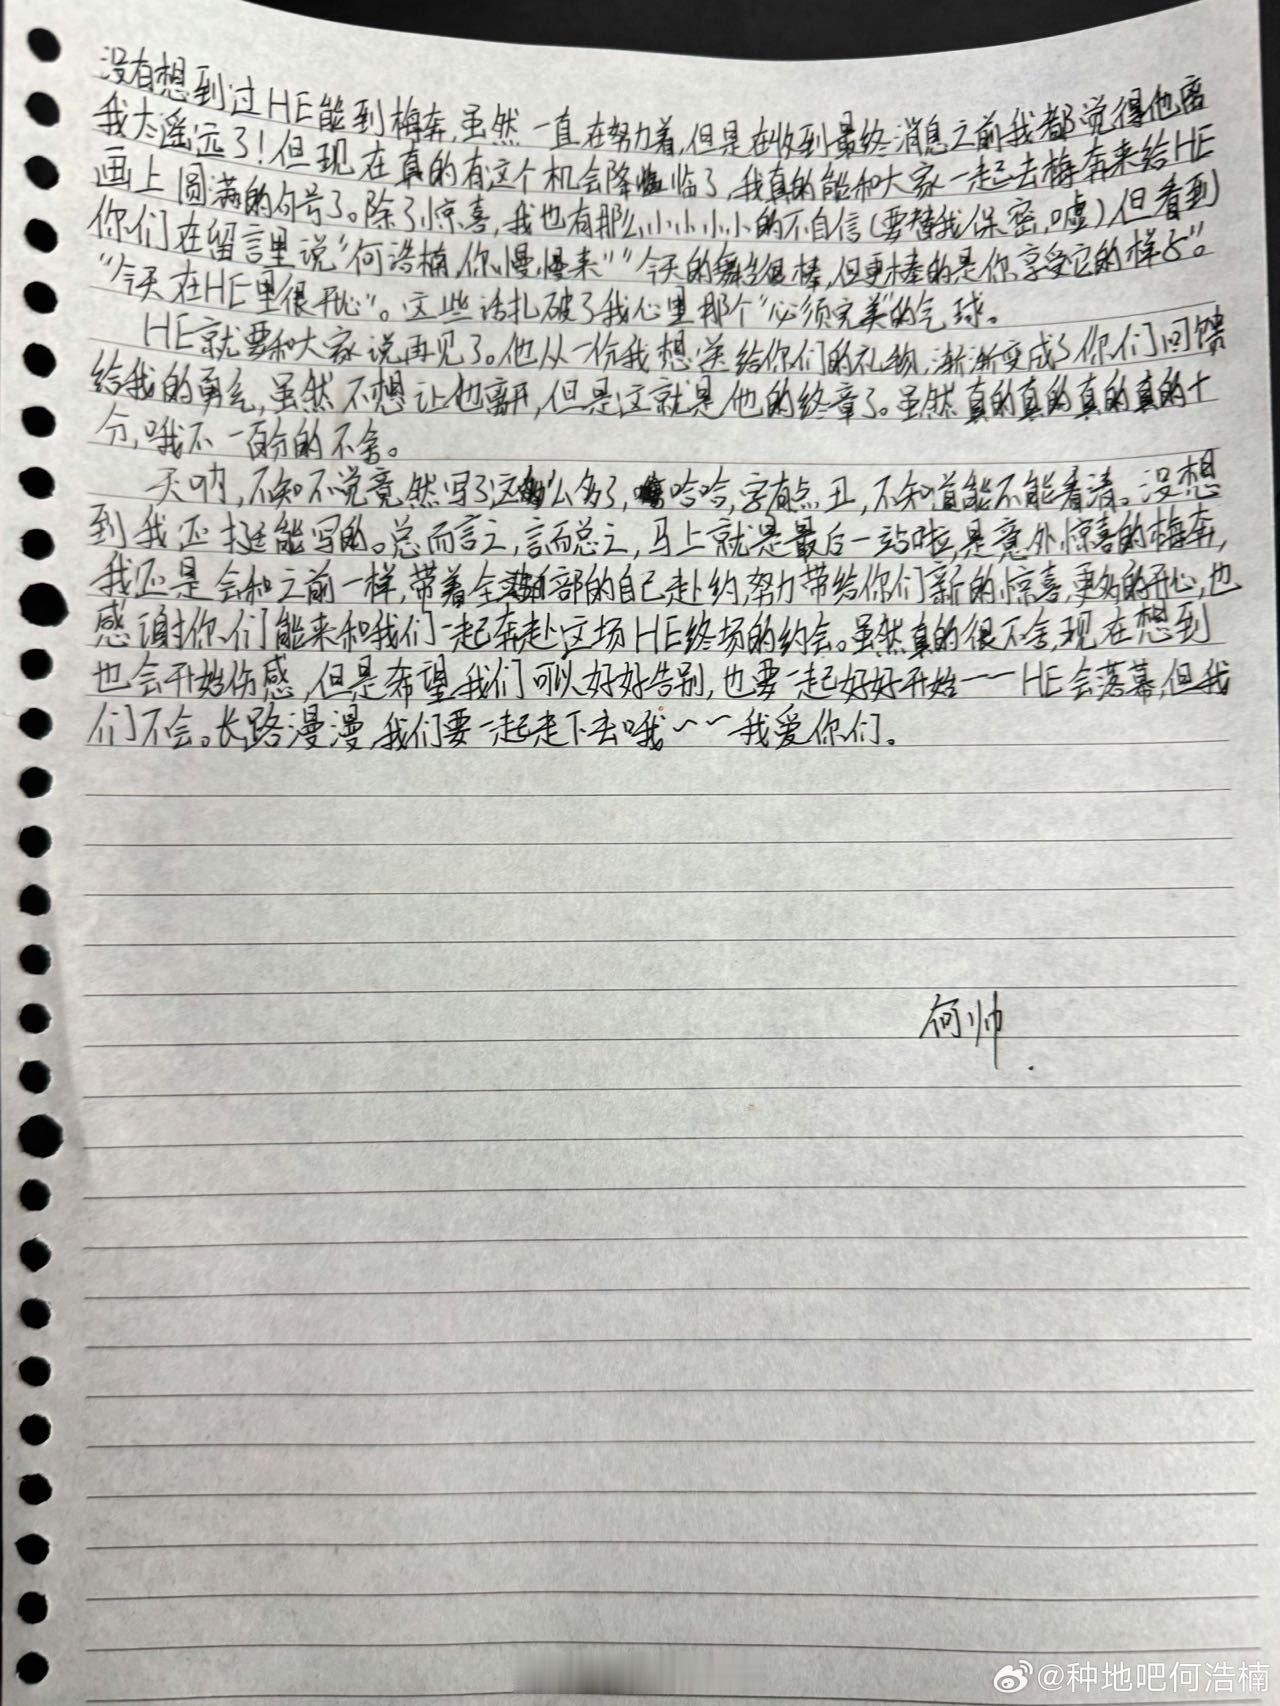 没有想到过HE能到梅奔,虽然一直在努力着,但是在收到最终消息之前我都觉得他离
我太遥远了!但现在真的有这个机会降临了,我真的能和大家一起去梅奔来给HE
画上圆满的句号了。除了惊喜,我也有那么小小小小的不自信(要替我保密,嘘),但看到
你们在留言里说“何浩楠,你慢慢来”“今天的舞台很棒,但更棒的是你享受它的样子”。
“今天在HE里很开心”。这些话扎破了我心里那个“必须完美”的气球。
HE就要和大家说再见了。他从一份我想送给你们的礼物,渐渐变成了你们回馈
给我的勇气,虽然不想让他离开,但是这就是他的终章了。虽然真的真的真的真的十
分,哦不一百分的不舍。
天呐,不知不觉竟然写了这么多了,哈哈,字有点丑,不知道能不能看清。没想
到我还挺能写的。总而言之,言而总之,马上就是最后一站啦,是意外惊喜的梅奔,
我还是会和之前一样,带着全部的自己赴约,努力带给你们新的惊喜,更多的开心,也
感谢你们能来和我们一起奔赴这场HE终场的约会。虽然真的很不舍,现在想到
也会开始伤感,但是希望我们可以好好告别,也要一起好好开始——HE会落幕,但我
们不会。长路漫漫,我们要一起走下去哦~~我爱你们。
何帅.
@种地吧何浩楠